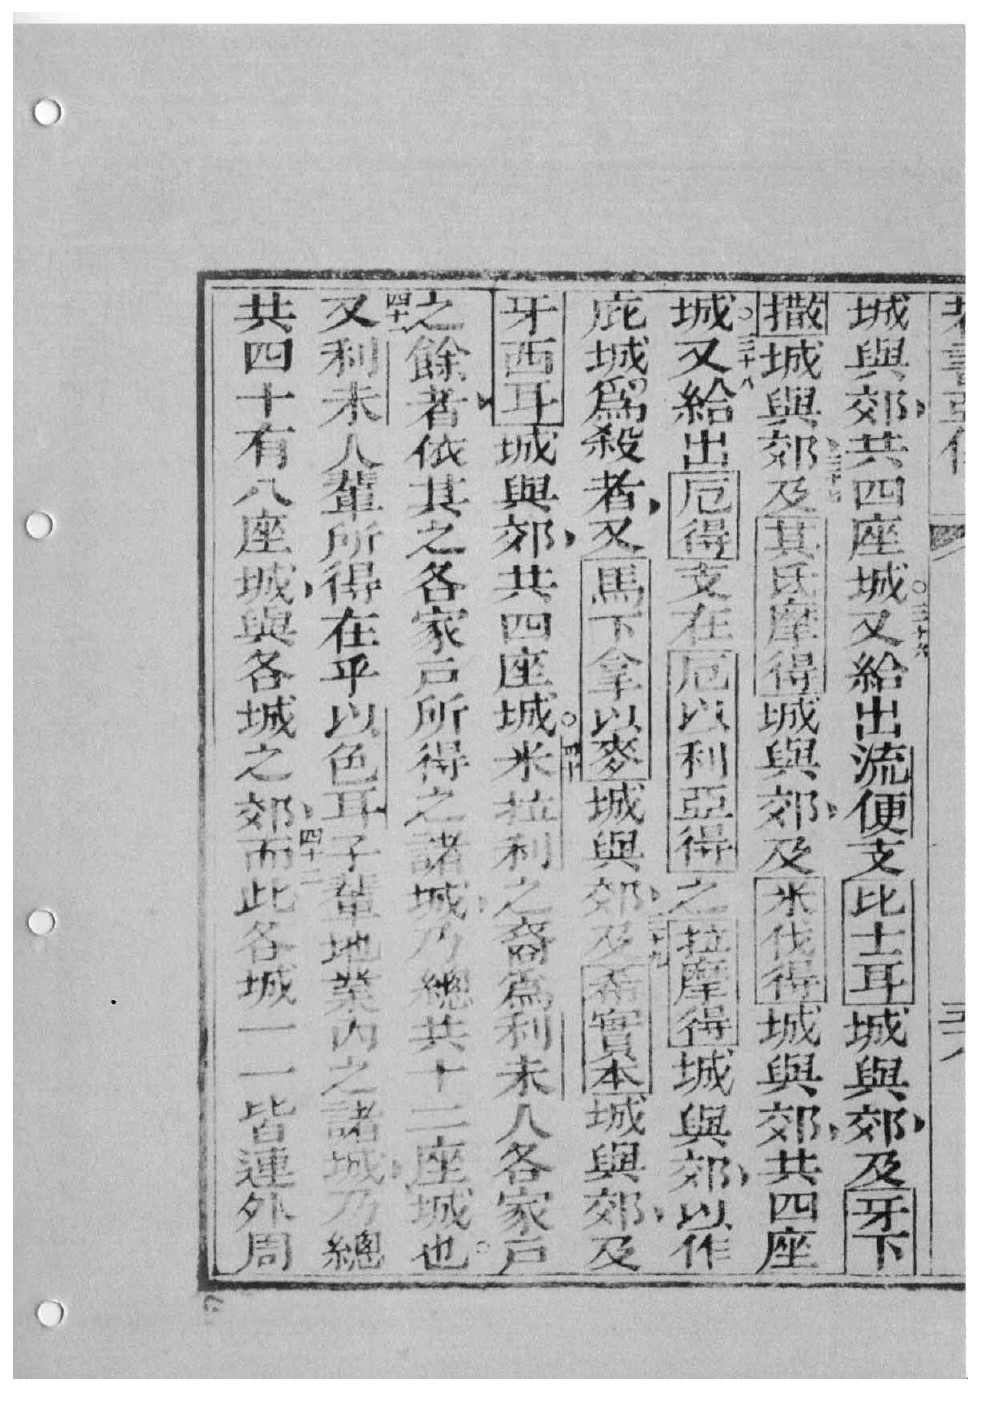 書亞 五六
城與郊共四座城。三十六又給出流便支比士耳城與郊及牙下
撒城與郊三十七及其氐摩得城與郊及米伐得城與郊共四座
城。三十八又給出厄得支在厄以利亞得之拉摩得城與郊以作
庇城爲殺者又馬下拿以麥城與郊三十九及希實本城與郊及
牙西耳城與郊共四座城。四十米拉利之裔爲利未人各家戶
之餘者依其之各家戶所得之諸城乃總共十二座城也。
四十一又利未人輩所得在乎以色耳子輩地業內之諸城乃總
共四十有八座城與各城之郊四十二而此各城一一皆連外周